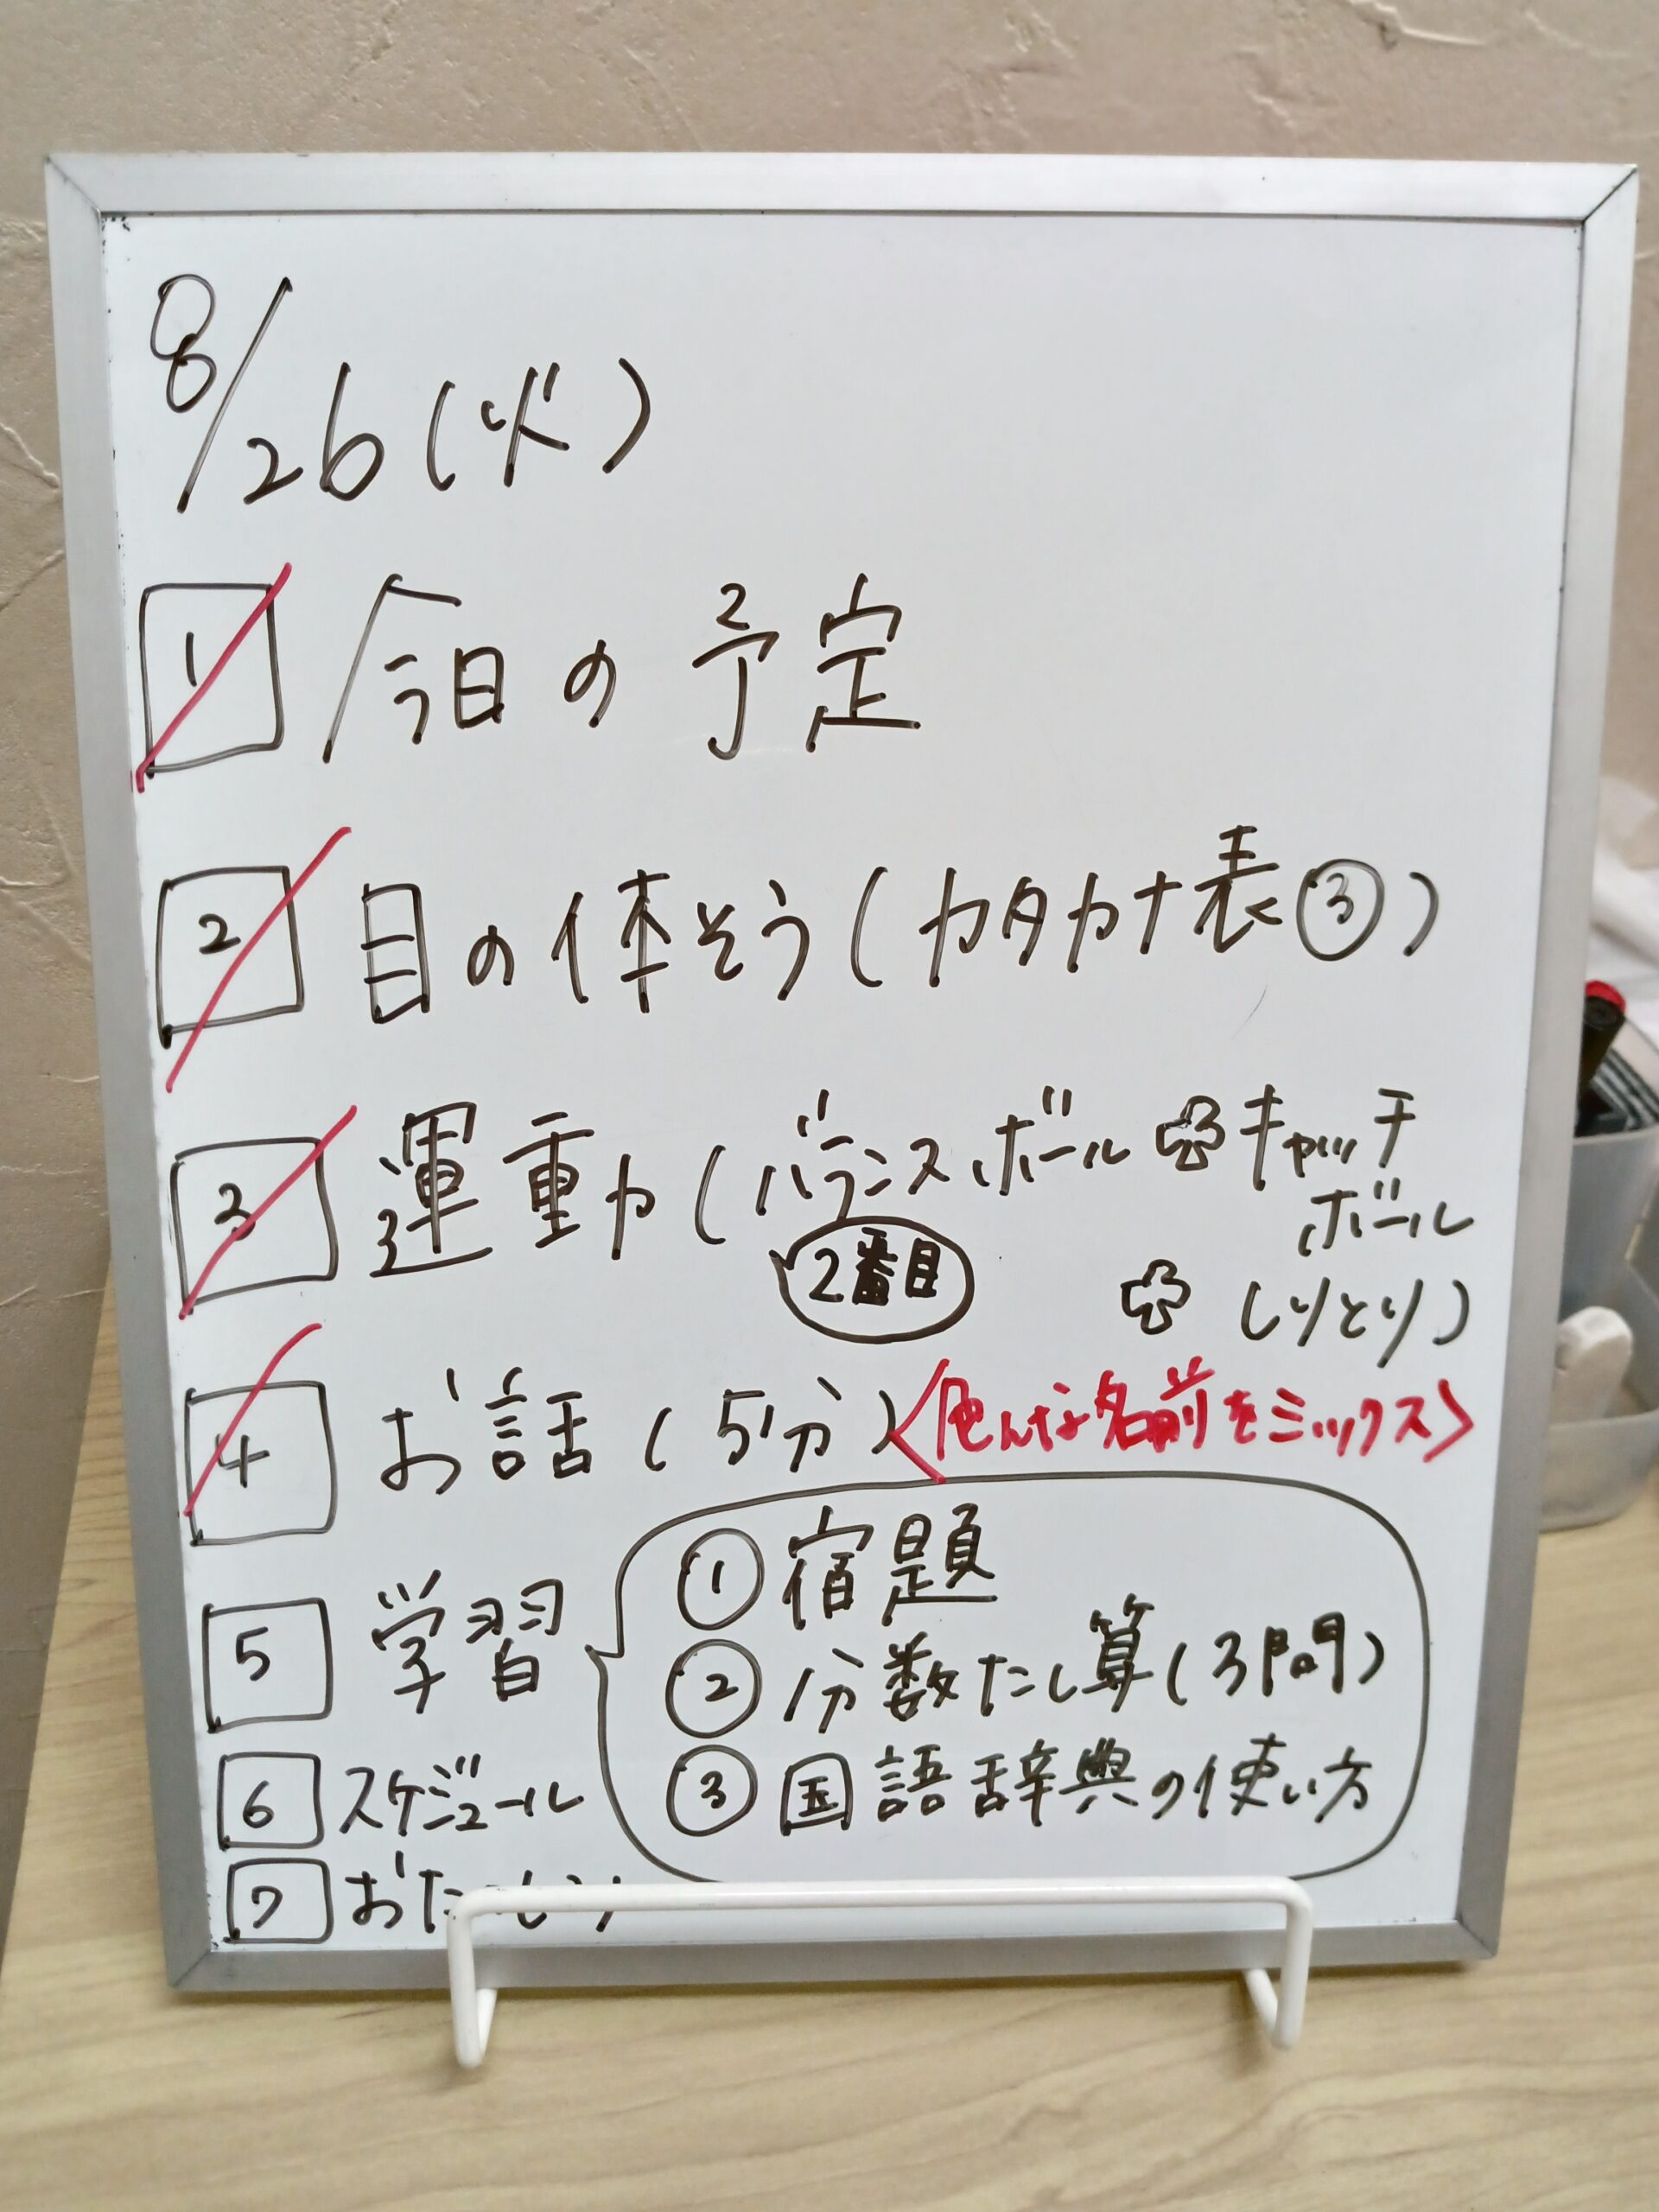 8/26(火)
1 今日の予定
2 目の体そう(カタカナ表③)
3 運動(バランスボール キャッチ
ボール
2番目
(しりとり)
4 お話(5分)<色んな名前をミックス>
5 学習
①宿題
②分数たし算(3問)
③国語辞典の使い方
6 スケジュール
7